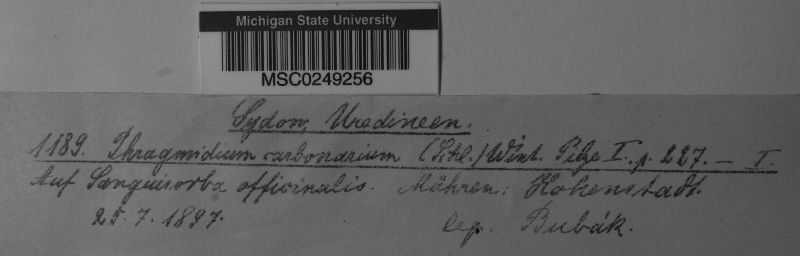 Michigan State University
MSC0249256
Sydow, Uredineen.
1189. Phragmidium carbonarium (Schl.) Wint. Pilze I. p. 227. — I.
Auf Sanguisorba officinalis. Mähren: Hohenstadt.
25. 7. 1897. leg. Bubák.